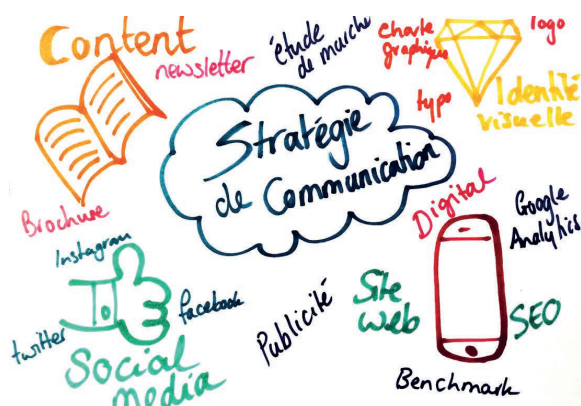 Content
newsletter
étude
de marche
charte
graphique
logo
typo
Identité
visuelle
Stratégie
de Communication
Brochure
Instagram
twitter
facebook
Social
media
Publicité
Digital
Site
web
Google
Analytics
SEO
Benchmark